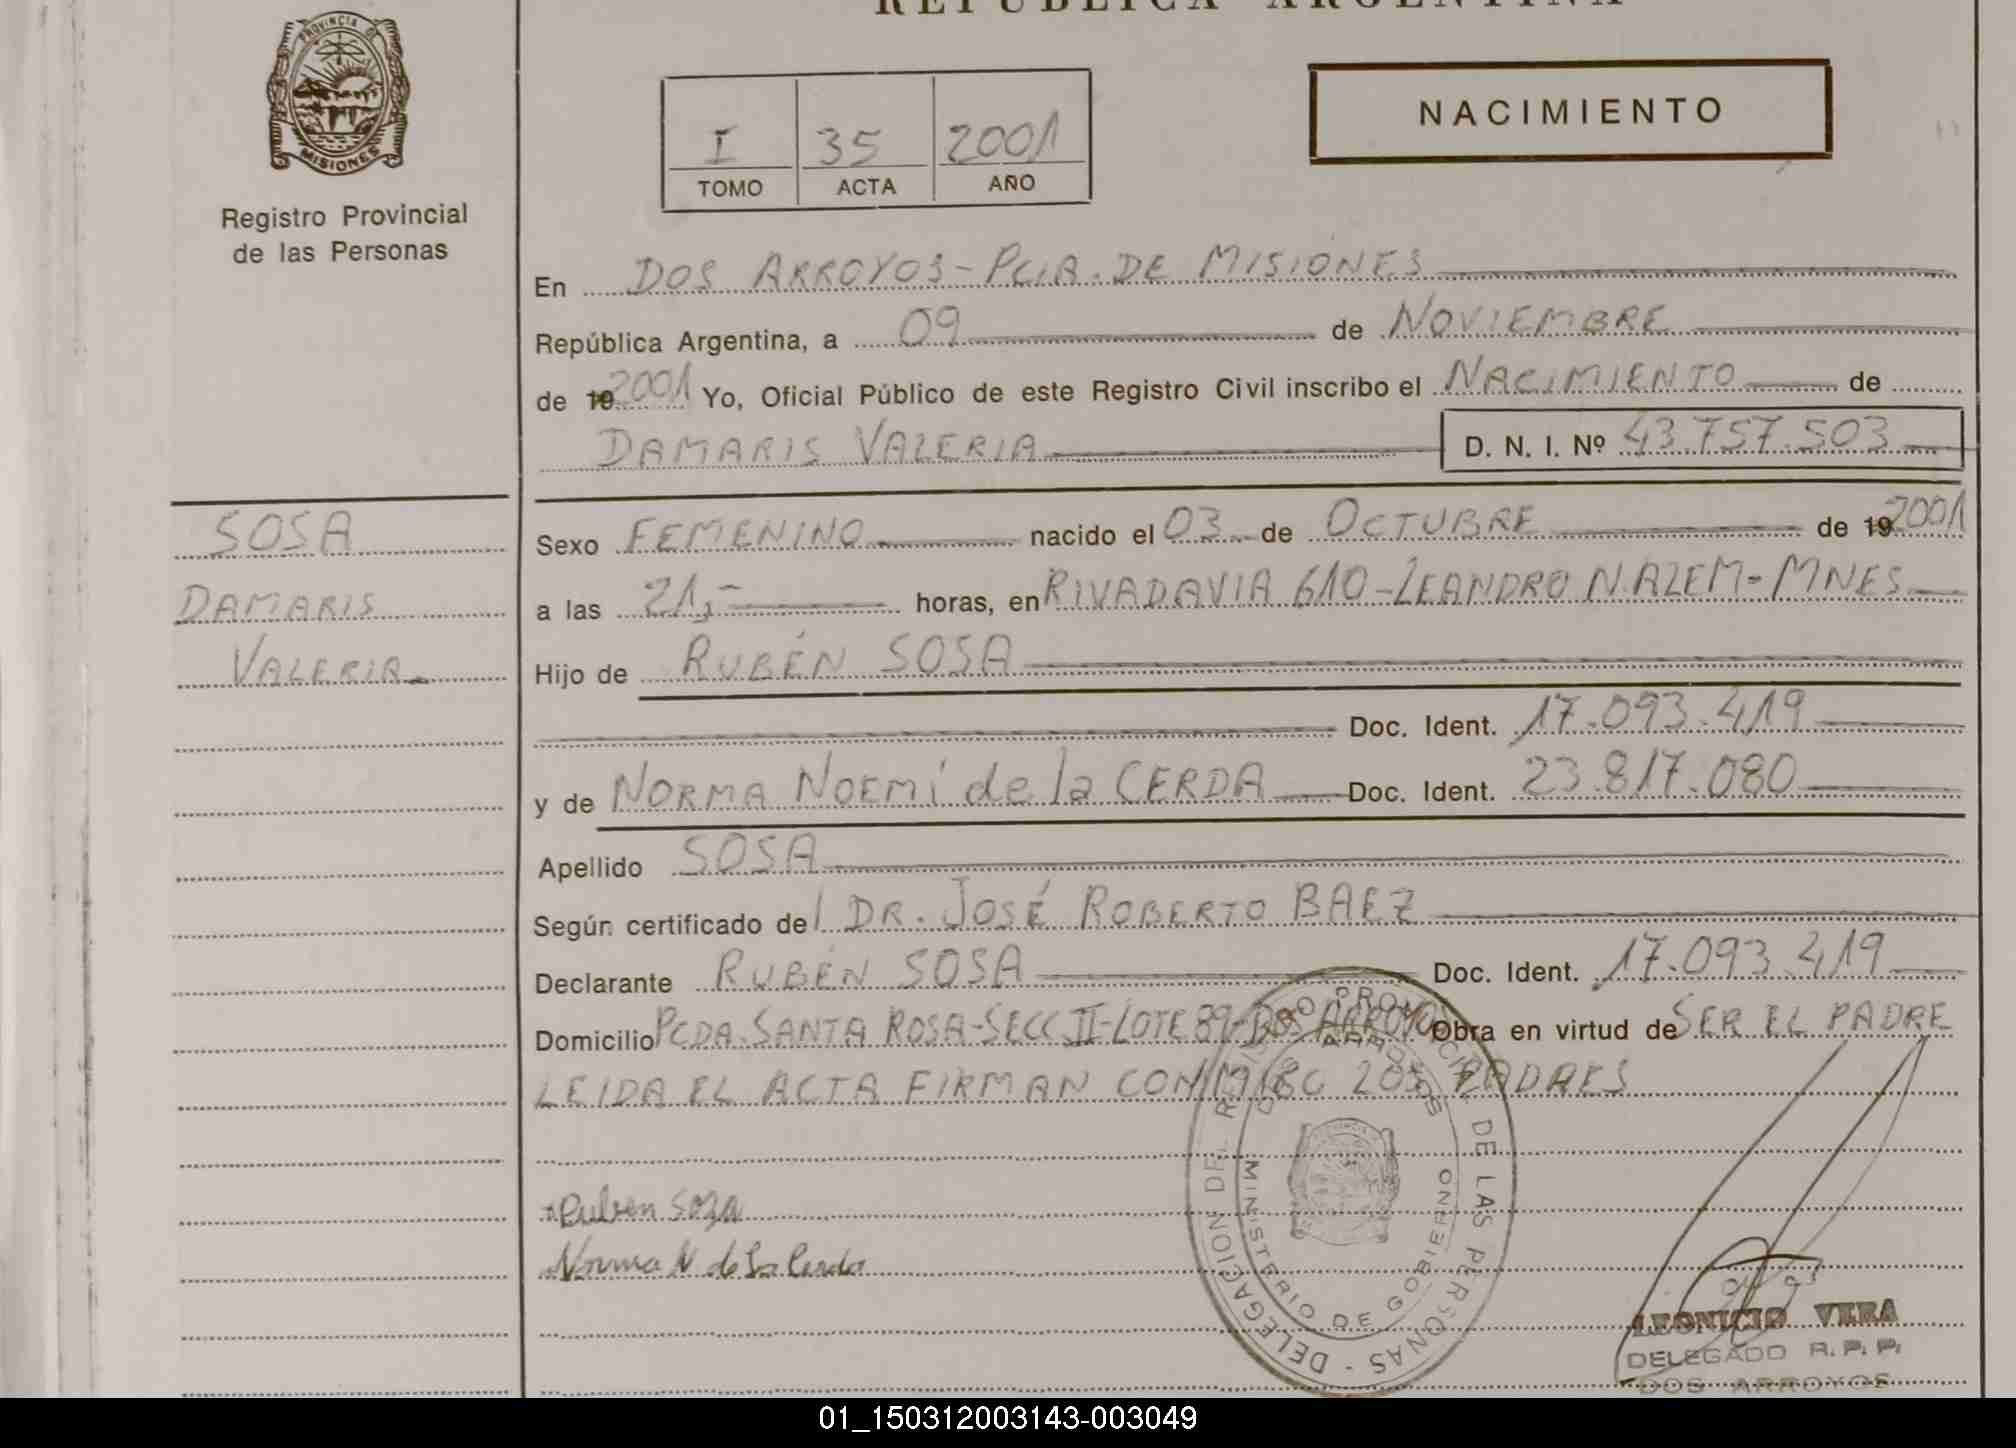 REPUBLICA ARGENTINA
PROVINCIA DE
MISIONES
Registro Provincial
de las Personas
I 35 2001
TOMO ACTA AÑO
NACIMIENTO
En DOS ARROYOS - PCIA. DE MISIONES
República Argentina, a 09 de NOVIEMBRE
de 19 2001 Yo, Oficial Público de este Registro Civil inscribo el NACIMIENTO de
DAMARIS VALERIA D. N. I. Nº 43.757.503
SOSA
DAMARIS
VALERIA
Sexo FEMENINO nacido el 03 de OCTUBRE de 19 2001
a las 21,- horas, en RIVADAVIA 610 - LEANDRO N. ALEM - MNES
Hijo de RUBÉN SOSA
Doc. Ident. 17.093.419
y de NORMA NOEMÍ de la CERDA Doc. Ident. 23.817.080
Apellido SOSA
Según certificado del DR. JOSÉ ROBERTO BAEZ
Declarante RUBÉN SOSA Doc. Ident. 17.093.419
Domicilio PCDA. SANTA ROSA - SECC II - LOTE 89 - DOS ARROYOS Obra en virtud de SER EL PADRE
LEIDA EL ACTA FIRMAN CONMIGO LOS PADRES
Ruben SOSA
Norma N de la Cerda
DELEGACION DEL REGISTRO PROVINCIAL DE LAS PERSONAS -
DOS ARROYOS
MINISTERIO DE GOBIERNO
LEONICIO VERA
DELEGADO R. P. P.
DOS ARROYOS
01_150312003143-003049